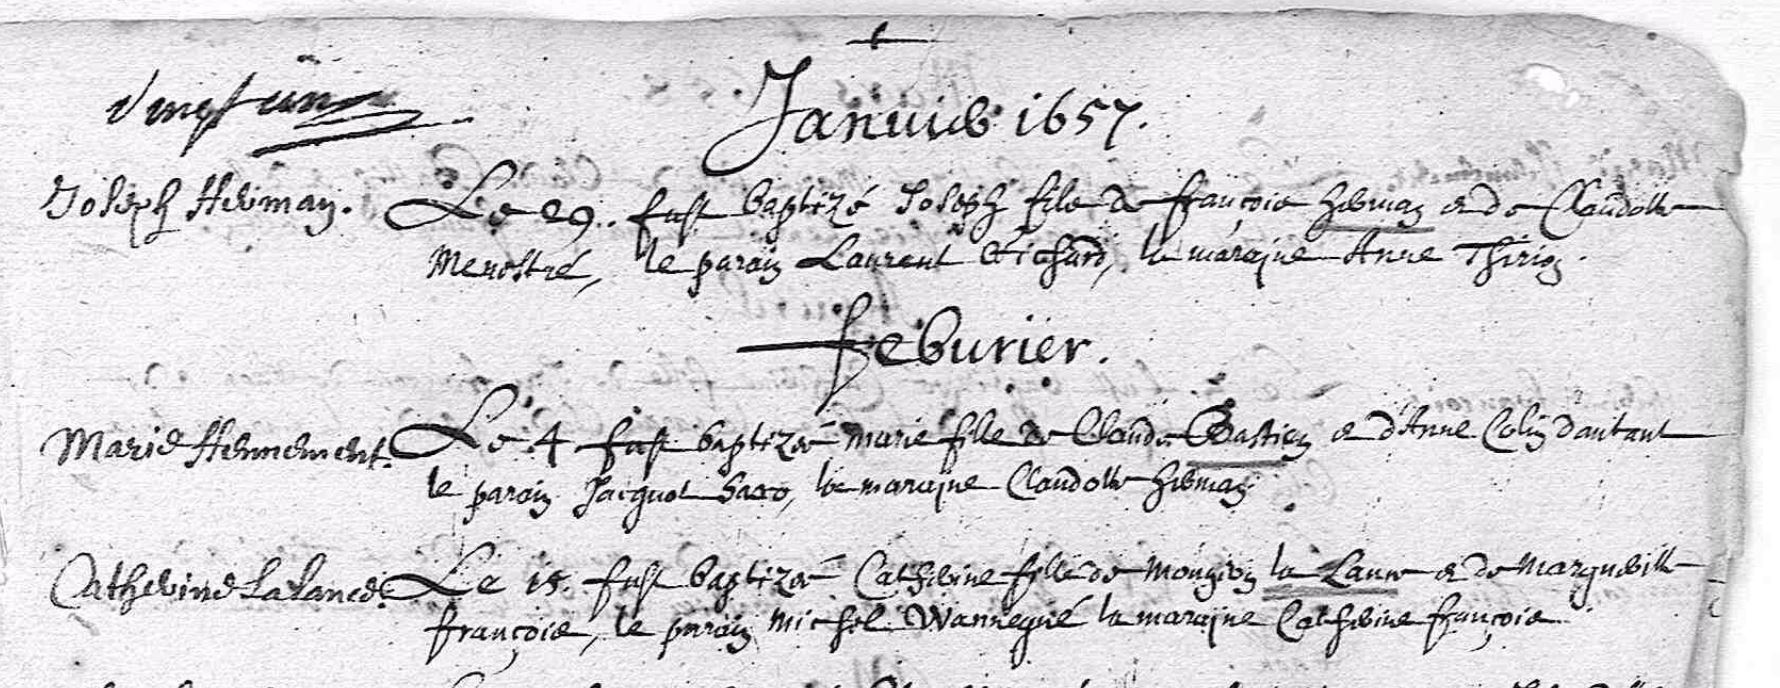 vingt un
Januier 1657.
Joseph Herman. Le 29. fust baptizé Joseph filz de françois herman et de Claudotte
Menostré, le parain Laurent Richard, la maraine Anne Thirion.
feburier.
Marie Hennement. Le 4 fust baptizée marie fille de Claude Bastien et d'Anne Colin dautant
le parain Jacquot, la maraine Claudotte herman
Catherine La Lance. Le 15. fust baptizée Catherine fille de Mougeon la Lance et de Margueritte
françois, le parain michel Wannegué la maraine Catherine françois